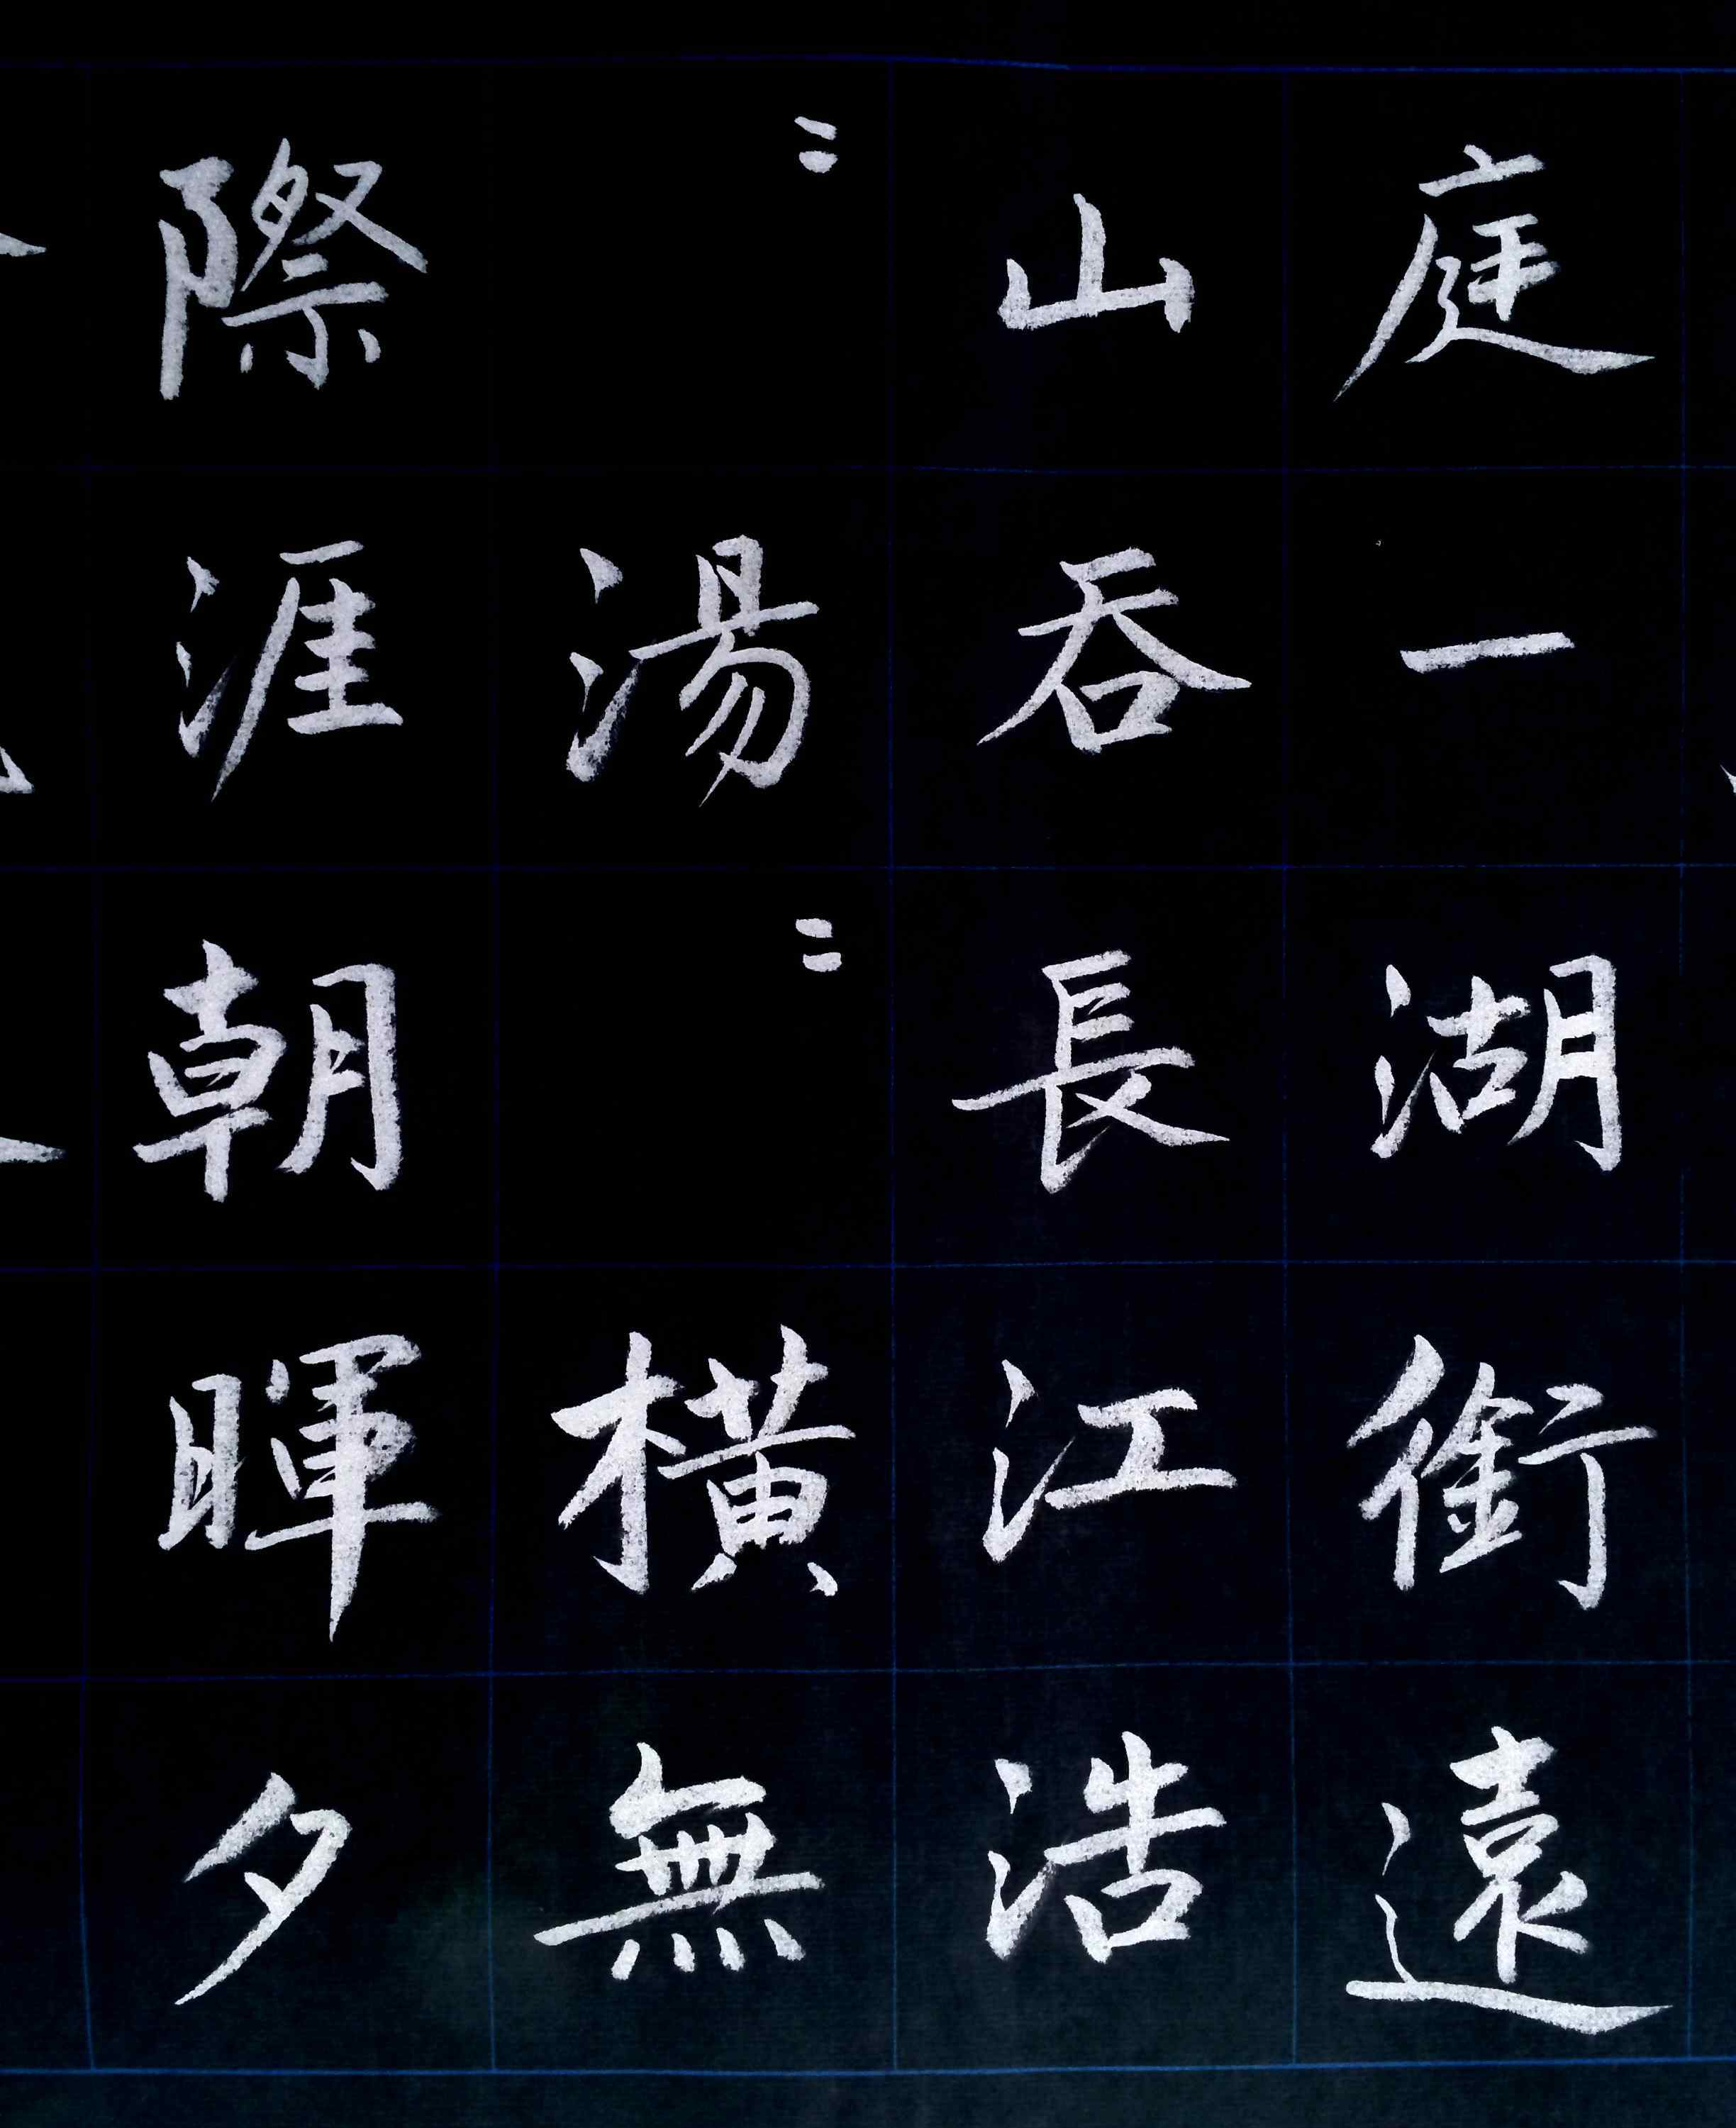 庭一湖銜遠
山吞長江浩
〻湯〻橫無
際涯朝暉夕